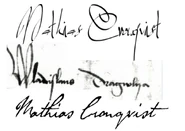 Mathias Cronqvist
Wladislaus Dragwlya
Mathias Cronqvist